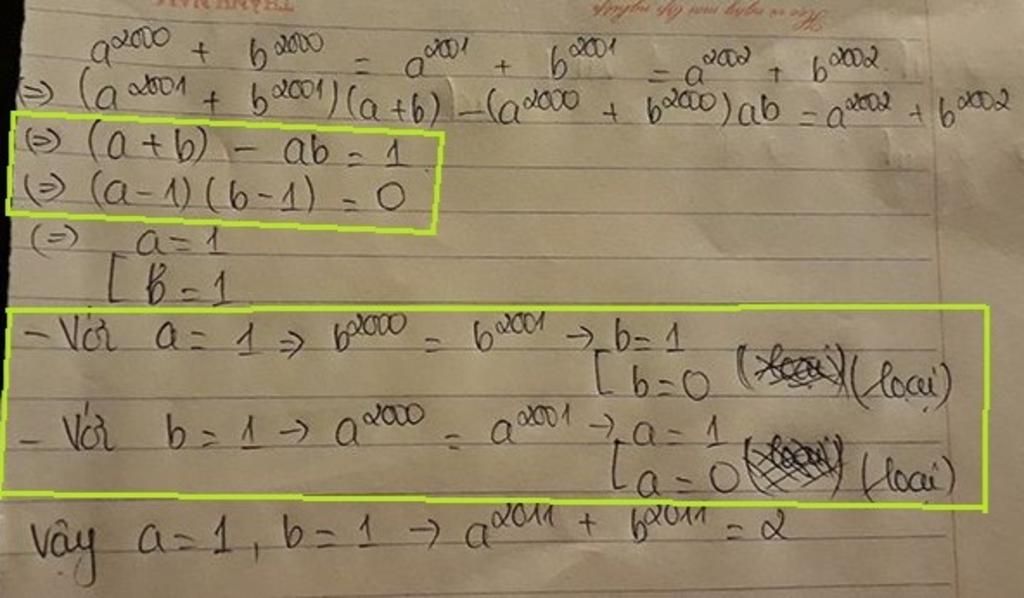 a²⁰⁰⁰ + b²⁰⁰⁰ = a²⁰⁰¹ + b²⁰⁰¹ = a²⁰⁰² + b²⁰⁰²
(=) (a²⁰⁰¹ + b²⁰⁰¹)(a+b) - (a²⁰⁰⁰ + b²⁰⁰⁰)ab = a²⁰⁰² + b²⁰⁰²
(=) (a+b) - ab = 1
(=) (a-1)(b-1) = 0
(=) [ a = 1
B = 1
- Với a = 1 => b²⁰⁰⁰ = b²⁰⁰¹ → [ b = 1
b = 0 (loại)
- Với b = 1 → a²⁰⁰⁰ = a²⁰⁰¹ → [ a = 1
a = 0 (loại)
Vậy a = 1, b = 1 → a²⁰¹¹ + b²⁰¹¹ = 2